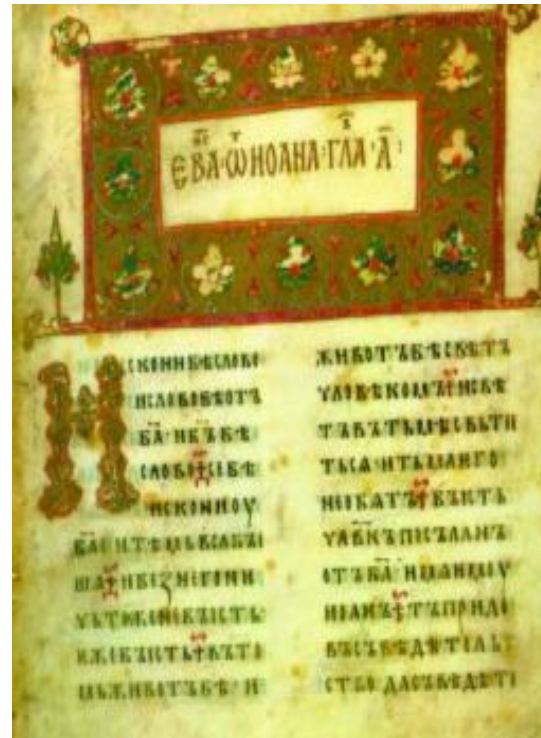 ЕВА҃Г·Ѡ҃Т ИОАНА·ГЛА҃В·А҃:
ИСКОНИБѢСЛОВО
ИСЛОВОБѢОТЪ
Б҃А·ИБ҃ЪБѢ
СЛОВО·СЕБѢ
ИСКОНИОУ
Б҃А·ИТѢМЬВСАБЫ
ША·ИБЕЖНЕГОНИ
ЧЬТОЖЕНЕБЫСТЬ
ѤЖЕБЫСТЬ·ВЪТО
МЬЖИВОТЪБѢ·И
ЖИВОТЪБѢСВѢТЪ
ЧЛОВѢКОМЪ·ИСВѢ
ТЪВЪТЬМѢСВЬТИ
ТЬСѦ·ИТЬМАѤГО
НЕОБѦТЪ·БЫСТЬ
ЧЛ҃ВКЪПОСЪЛАНЪ
ОТЪБ҃А·ИМѦѤМОУ
ИОАНЪ·ТЪПРИДЕ
ВЪСЪВѢДѢТЕЛЬ
СТВО·ДАСЪВѢДѢТЕ